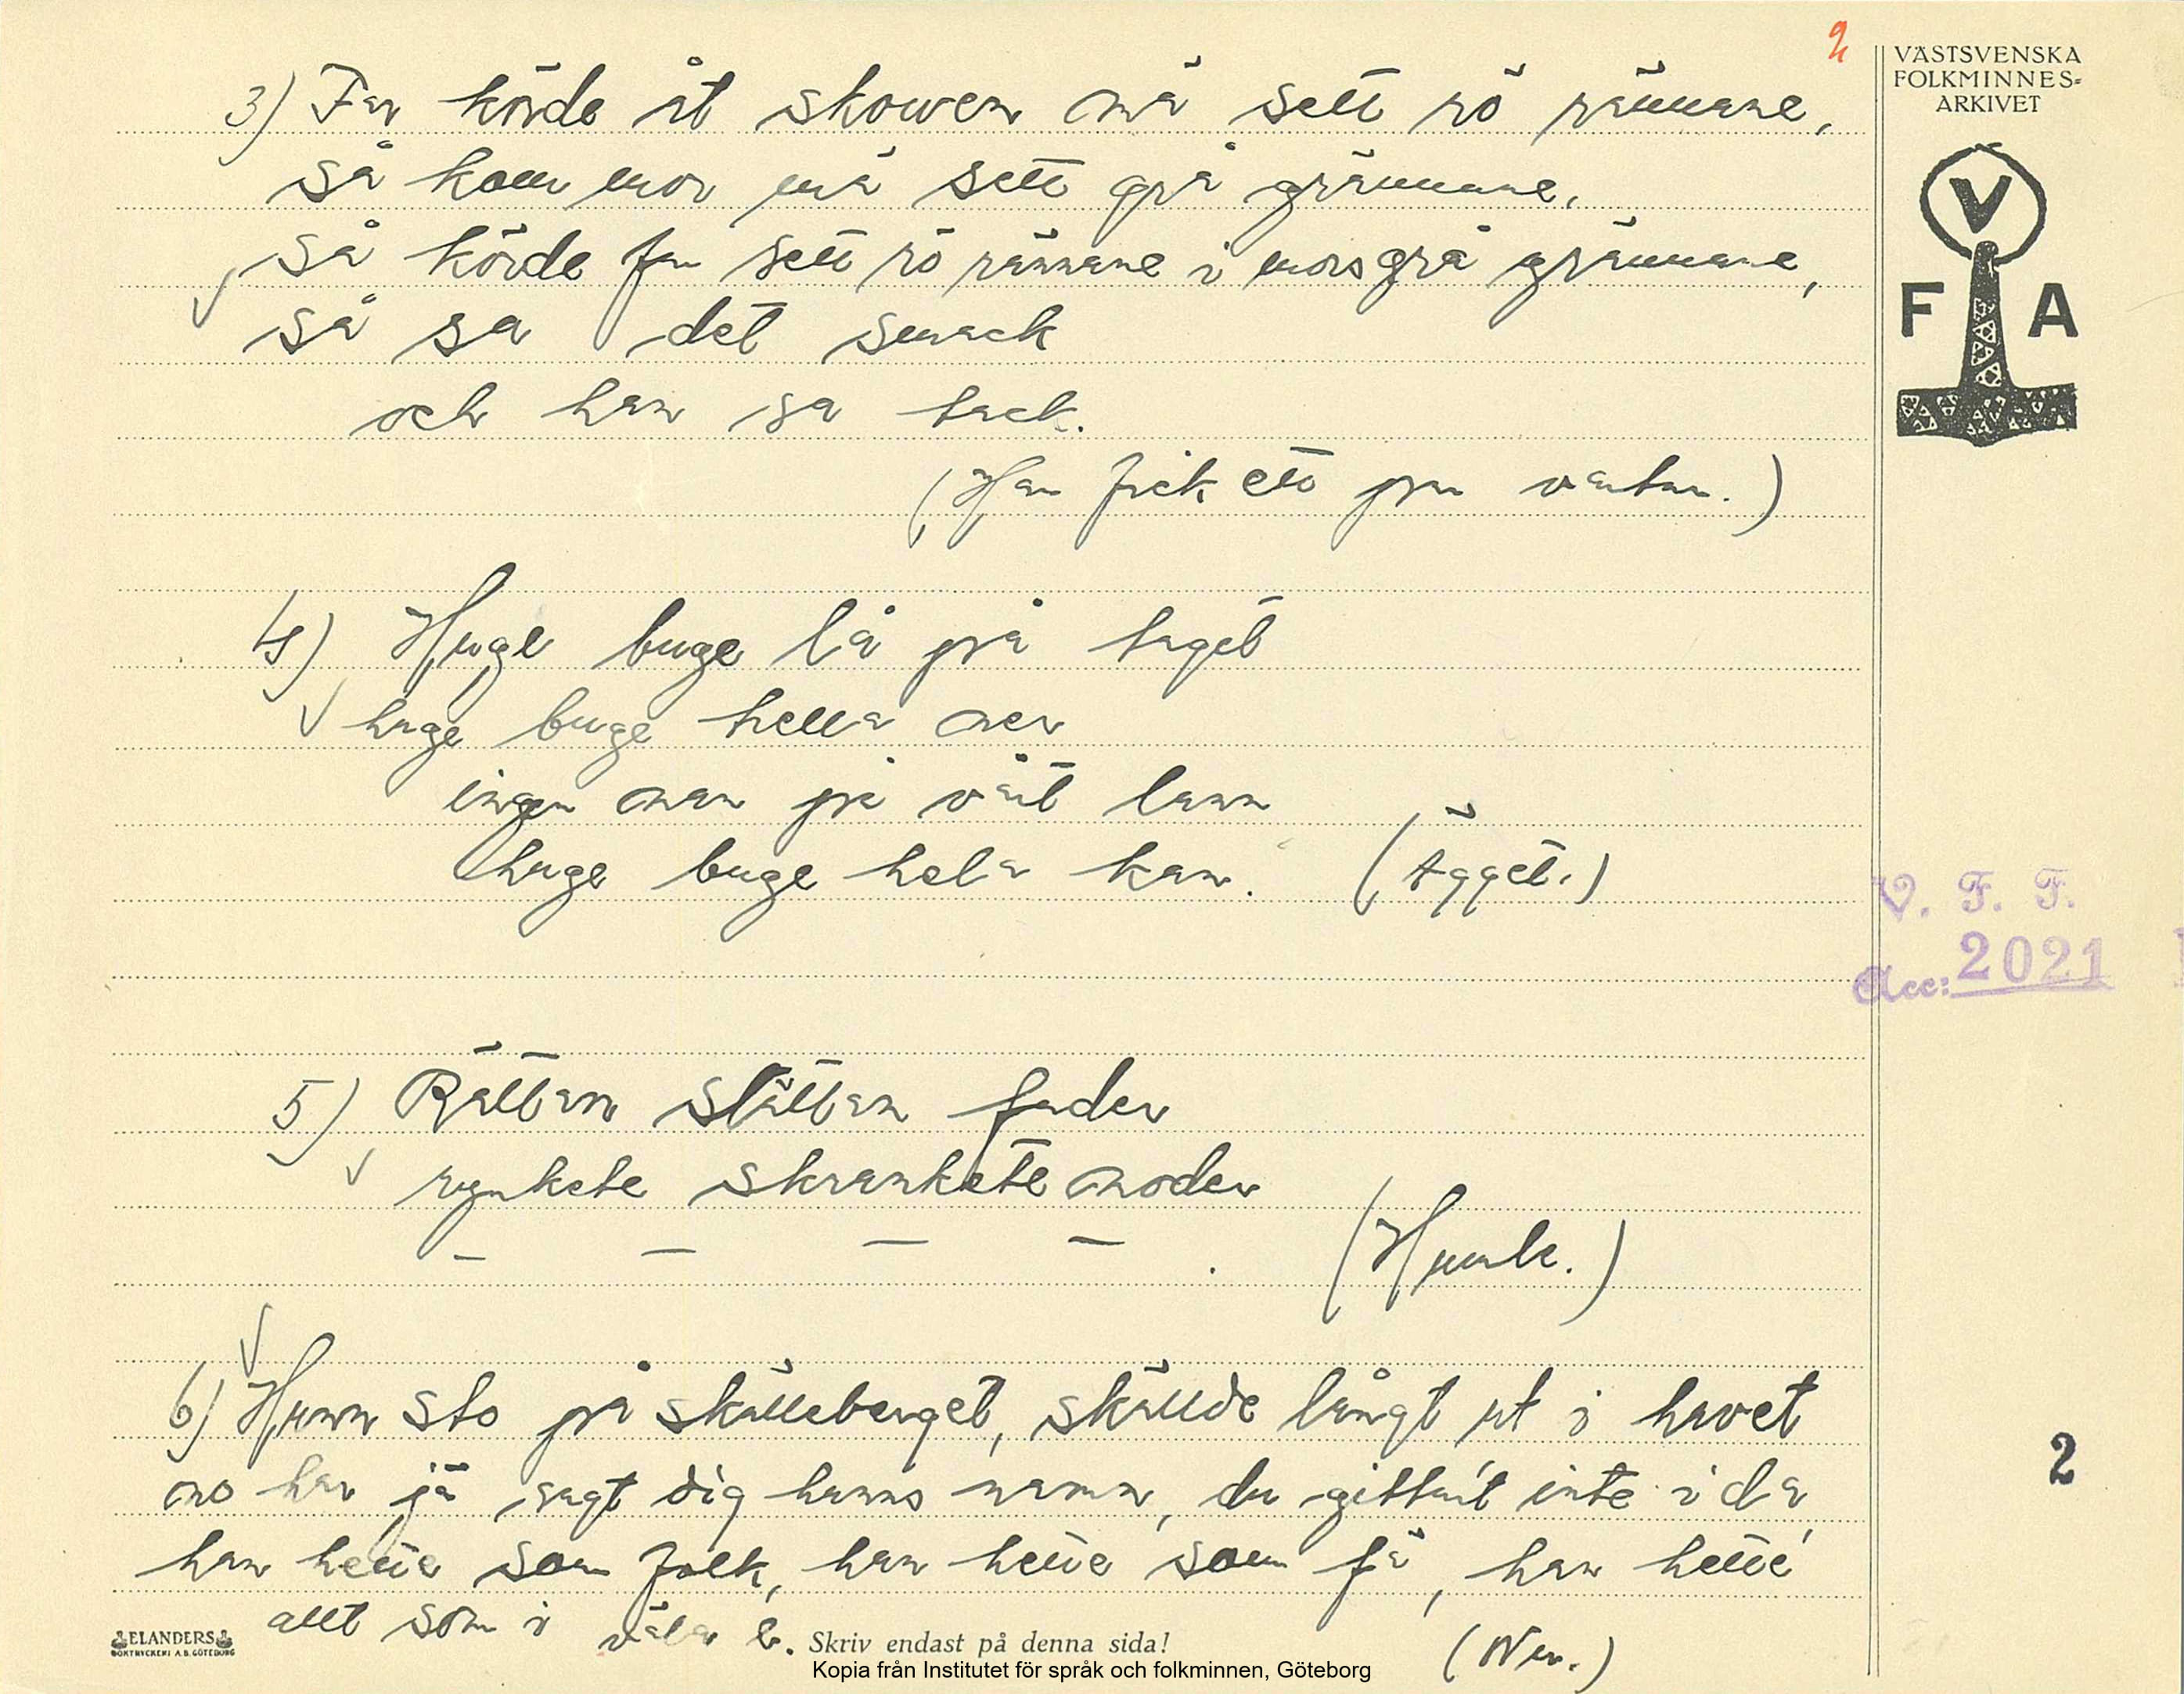 2
VÄSTSVENSKA
FOLKMINNES=
ARKIVET
V
F A
3) Far körde åt skowen mä sett rö rännane,
så kom mor mä sett grå grännane,
så körde far sett rö rännane i mors grå grännane,
så sa det smack
och han sa tack.
(Han fick ett par vantar.)
4) Huge buge lå på taget
huge buge trella ner
ingen man på vårt lann
huge buge hela kan. (Ägget.)
V. F. F.
Acc: 2021
5) Rättan slättan fader
rynkete skrankete moder
— — — — . (Humle.)
6) Hunn sto på skälleberget, skällde långt ut i havet
no har jä sagt dig hanns namn, du gittar't inte i da,
han hette som folk, han hette som fä, han hette
allt som i väla ä. (Nu.)
2
ELANDERS
BOKTRYCKERI A.B. GÖTEBORG
Skriv endast på denna sida!
Kopia från Institutet för språk och folkminnen, Göteborg